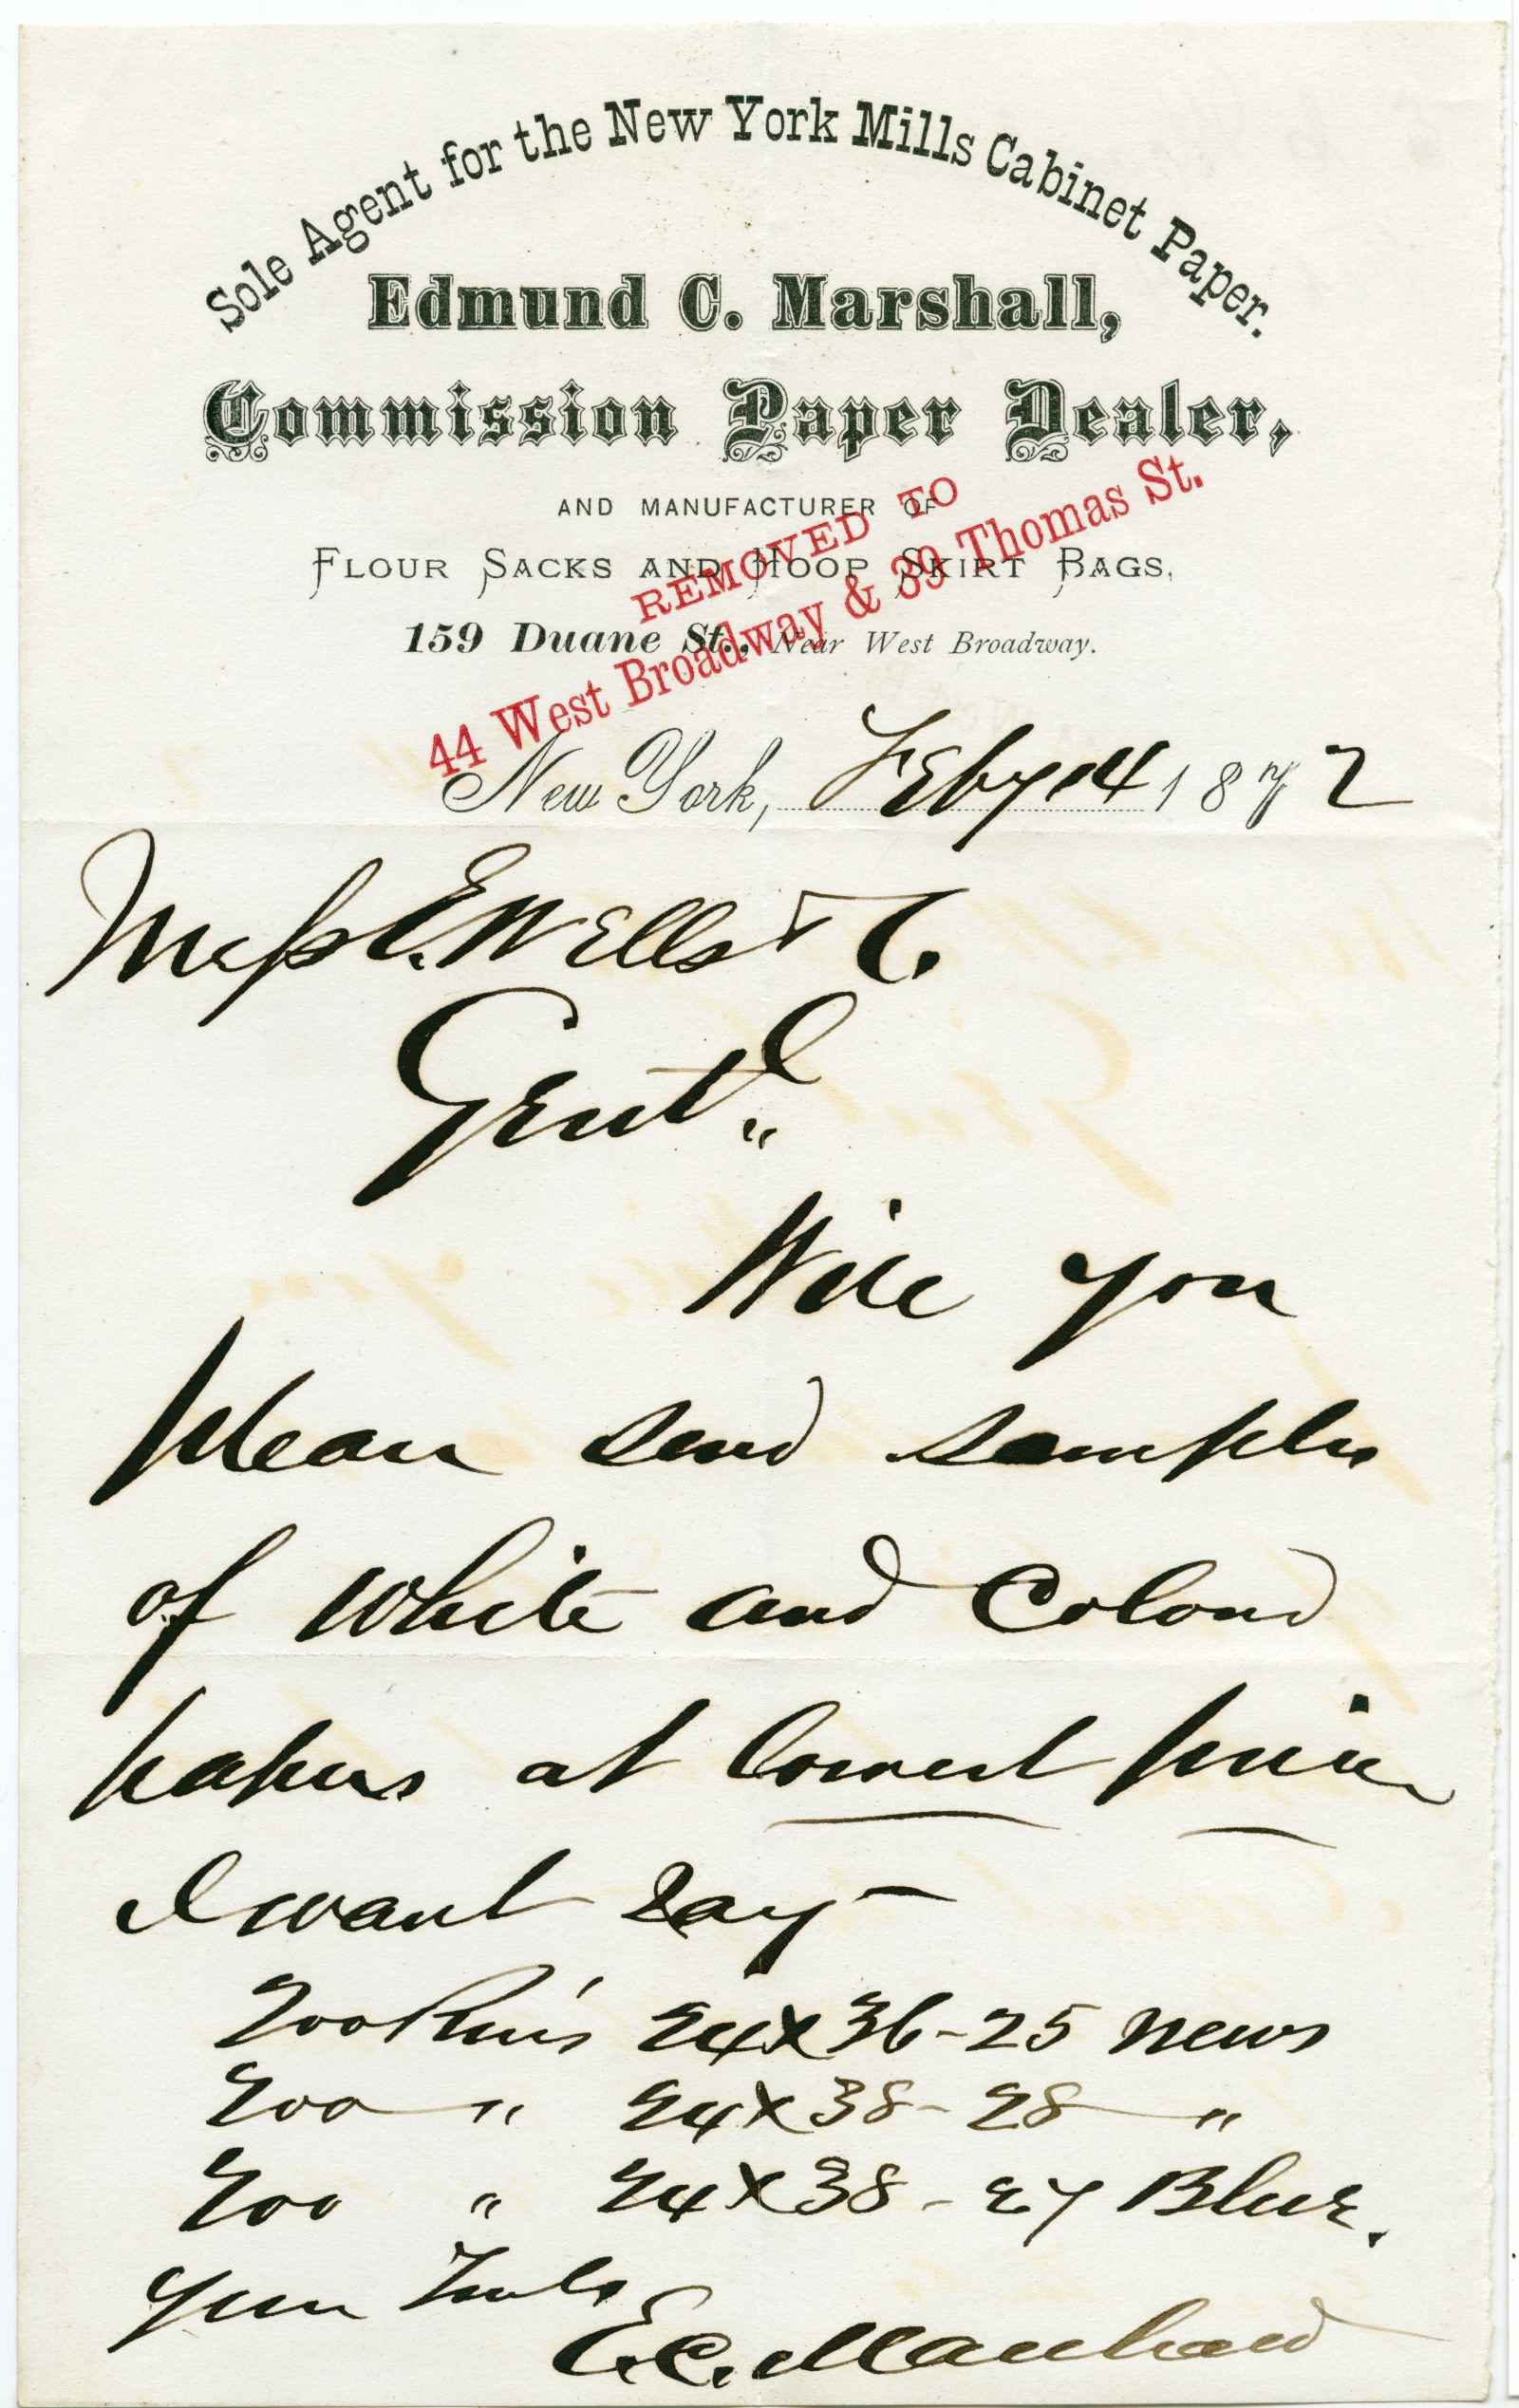 Sole Agent for the New York Mills Cabinet Paper.
Edmund C. Marshall,
Commission Paper Dealer,
AND MANUFACTURER OF
FLOUR SACKS AND HOOP SKIRT BAGS,
159 Duane St., Near West Broadway.
REMOVED TO
44 West Broadway & 39 Thomas St.
New York, Feby 14 1872
Mess E. Wells & C.
Gentl"
Will you
please send samples
of white and Colored
papers at lowest price
I want say—
200 Rms 24x36-25 News
200 " 24x38-28 "
200 " 24x38-27 Blue.
Yours Truly
E.C. Marshall